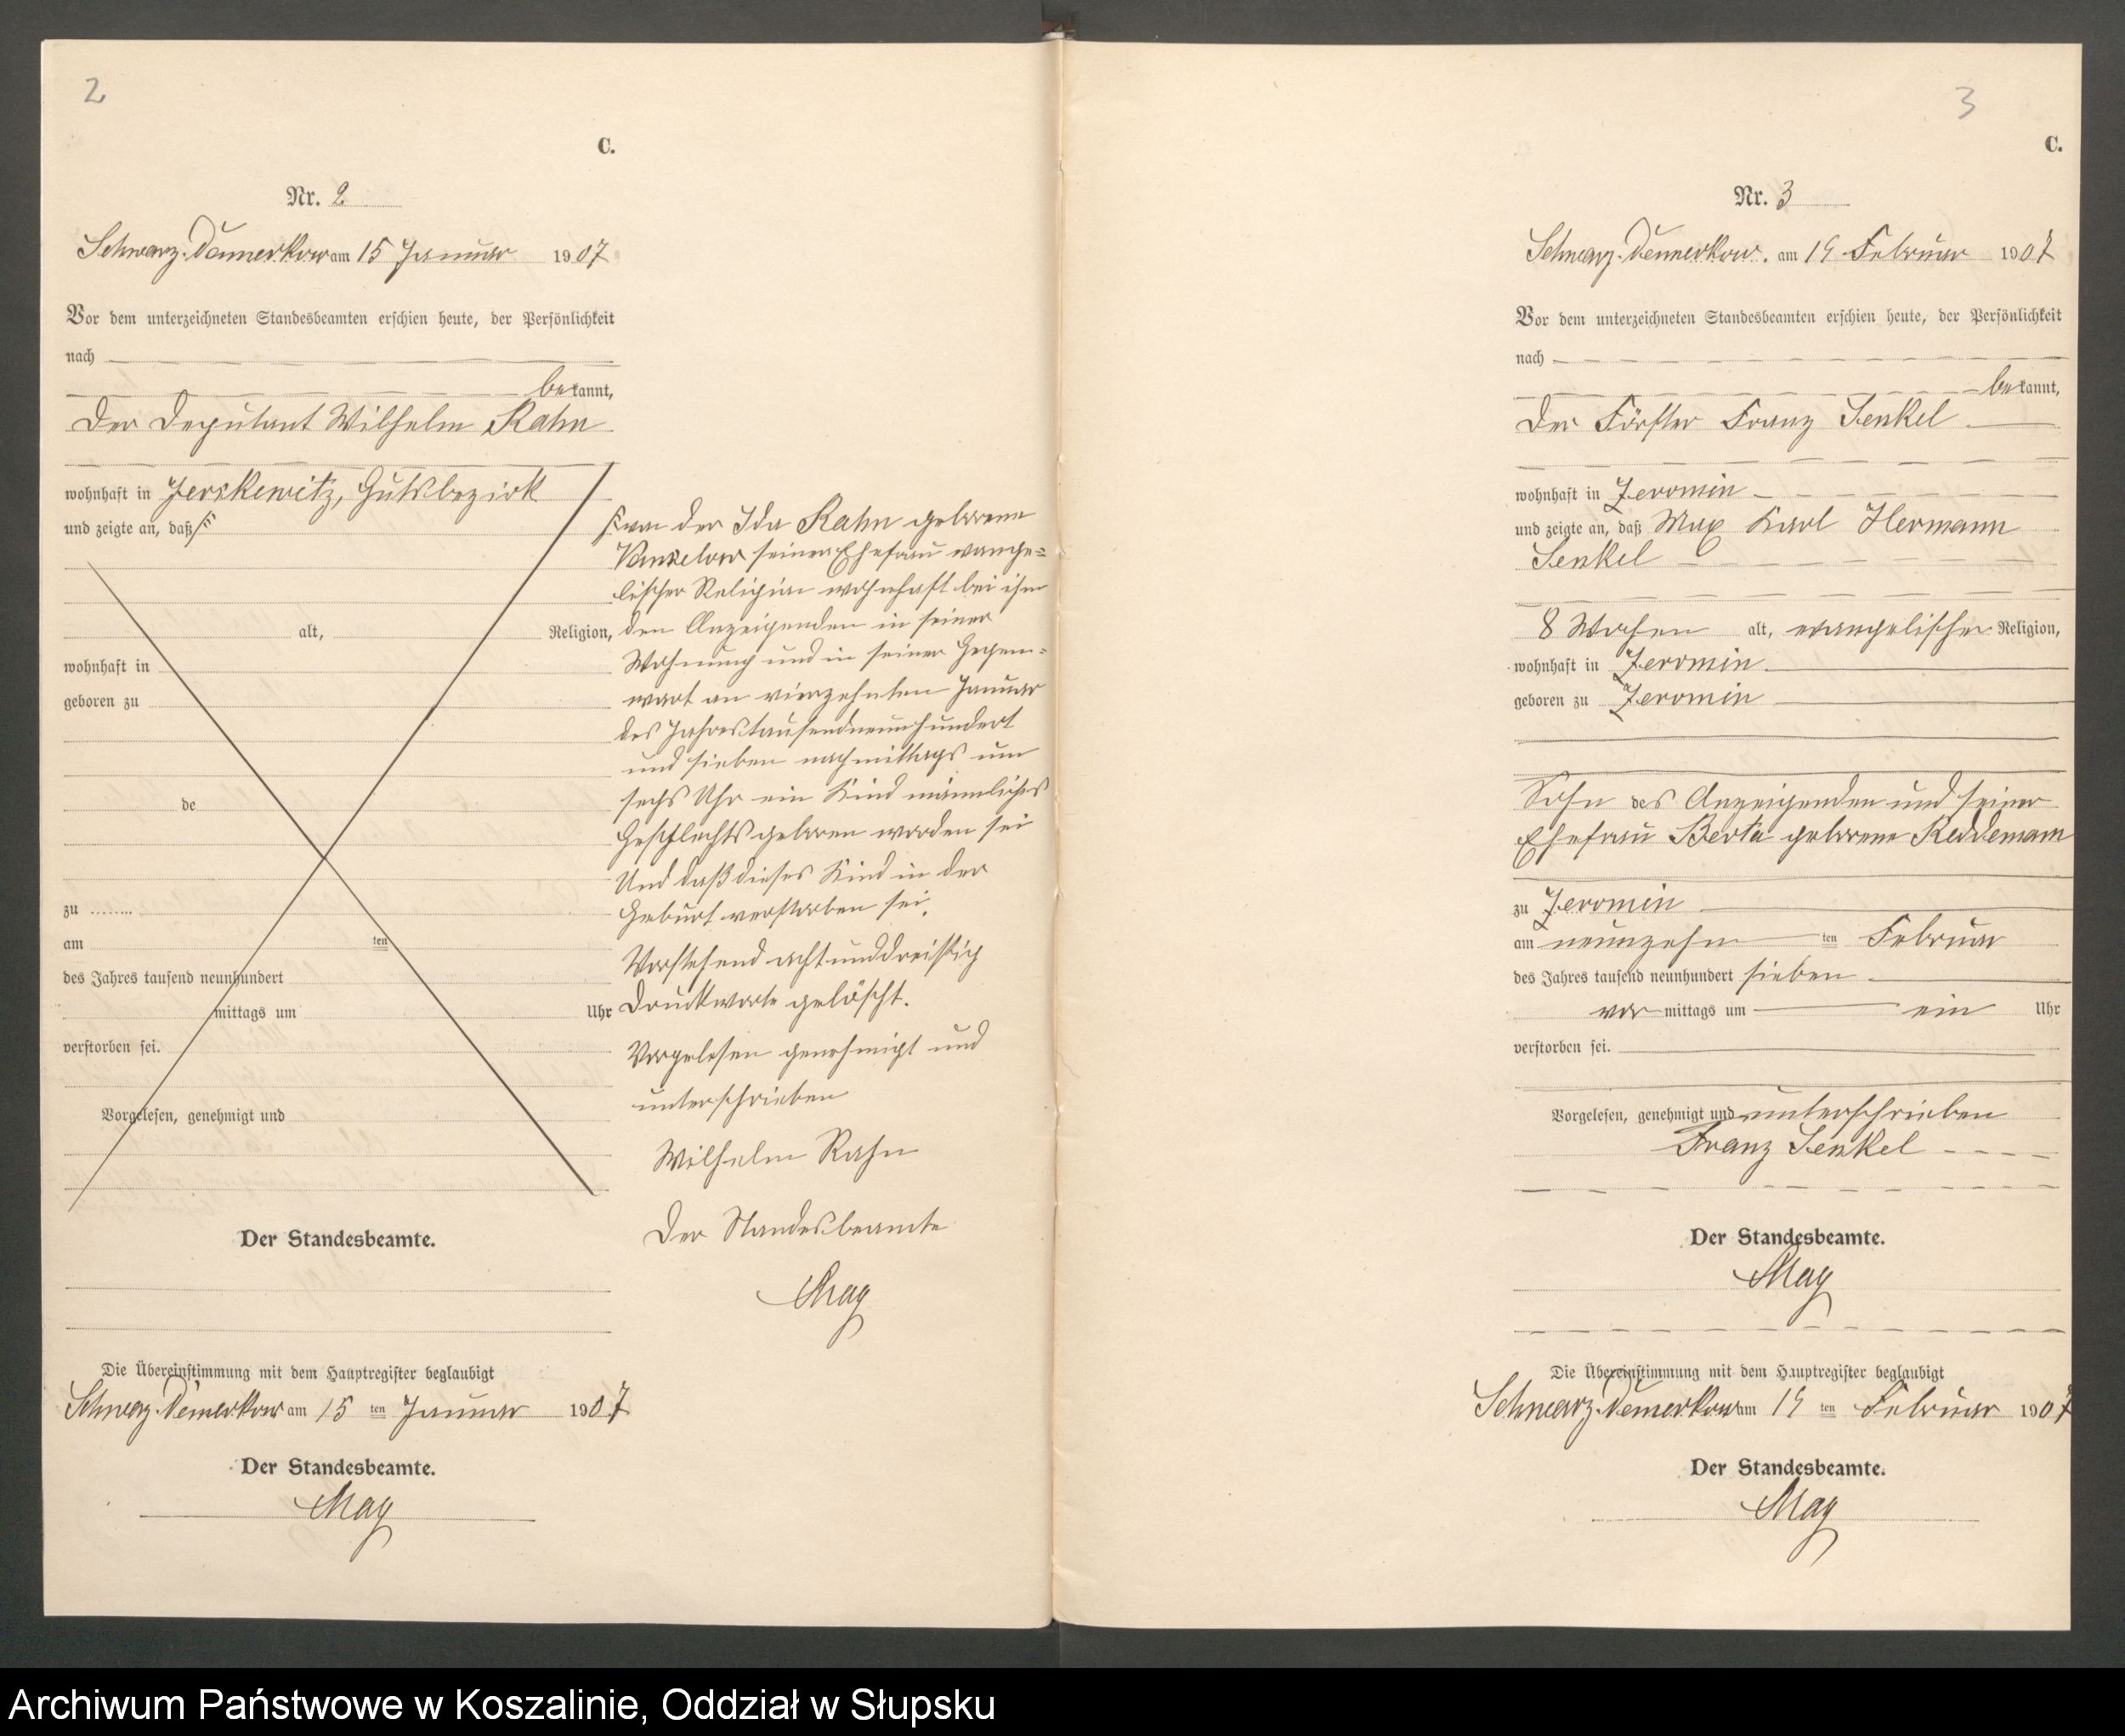 2
C.
Nr. 2
Schwarz-Damerkow am 15 Januar 1907
Vor dem unterzeichneten Standesbeamten erschien heute, der Persönlichkeit
nach
bekannt,
Der Deputant Wilhelm Rahn
wohnhaft in Jerskewitz, Gutsbezirk
und zeigte an, daß
alt, Religion,
wohnhaft in
geboren zu
de
zu
am ten
des Jahres tausend neunhundert
mittags um Uhr
verstorben sei.
Vorgelesen, genehmigt und
von der Ida Rahn geborene
seiner Ehefrau evange=
lischer Religion wohnhaft bei ihm
den Anzeigenden in seiner
Wohnung und in seiner Gegen=
wart an vierzehnten Januar
des Jahres tausendneunhundert
und sieben nachmittags um
sechs Uhr ein Kind männliches
Geschlechts geboren worden sei
Und daß dieses Kind in der
Geburt verstorben sei.
Vorstehend achtunddreißig
Druckworte gelöscht.
Vorgelesen genehmigt und
unterschrieben
Wilhelm Rahn
Der Standesbeamte
May
Der Standesbeamte.
Die Übereinstimmung mit dem Hauptregister beglaubigt
Schwarz-Damerkow am 15 ten Januar 1907
Der Standesbeamte.
May
3
C.
Nr. 3
Schwarz-Damerkow. am 19 Februar 1907
Vor dem unterzeichneten Standesbeamten erschien heute, der Persönlichkeit
nach
bekannt,
Der Förster Franz Senkel
wohnhaft in Zeromin
und zeigte an, daß Max Karl Hermann
Senkel
8 Wochen alt, evangelischer Religion,
wohnhaft in Zeromin
geboren zu Zeromin
Sohn des Anzeigenden und seiner
Ehefrau Berta geborene Reddemann
zu Zeromin
am neunzehn ten Februar
des Jahres tausend neunhundert sieben
vor mittags um ein Uhr
verstorben sei.
Vorgelesen, genehmigt und unterschrieben
Franz Senkel
Der Standesbeamte.
May
Die Übereinstimmung mit dem Hauptregister beglaubigt
Schwarz-Damerkow am 19 ten Februar 1907
Der Standesbeamte.
May
Archiwum Państwowe w Koszalinie, Oddział w Słupsku